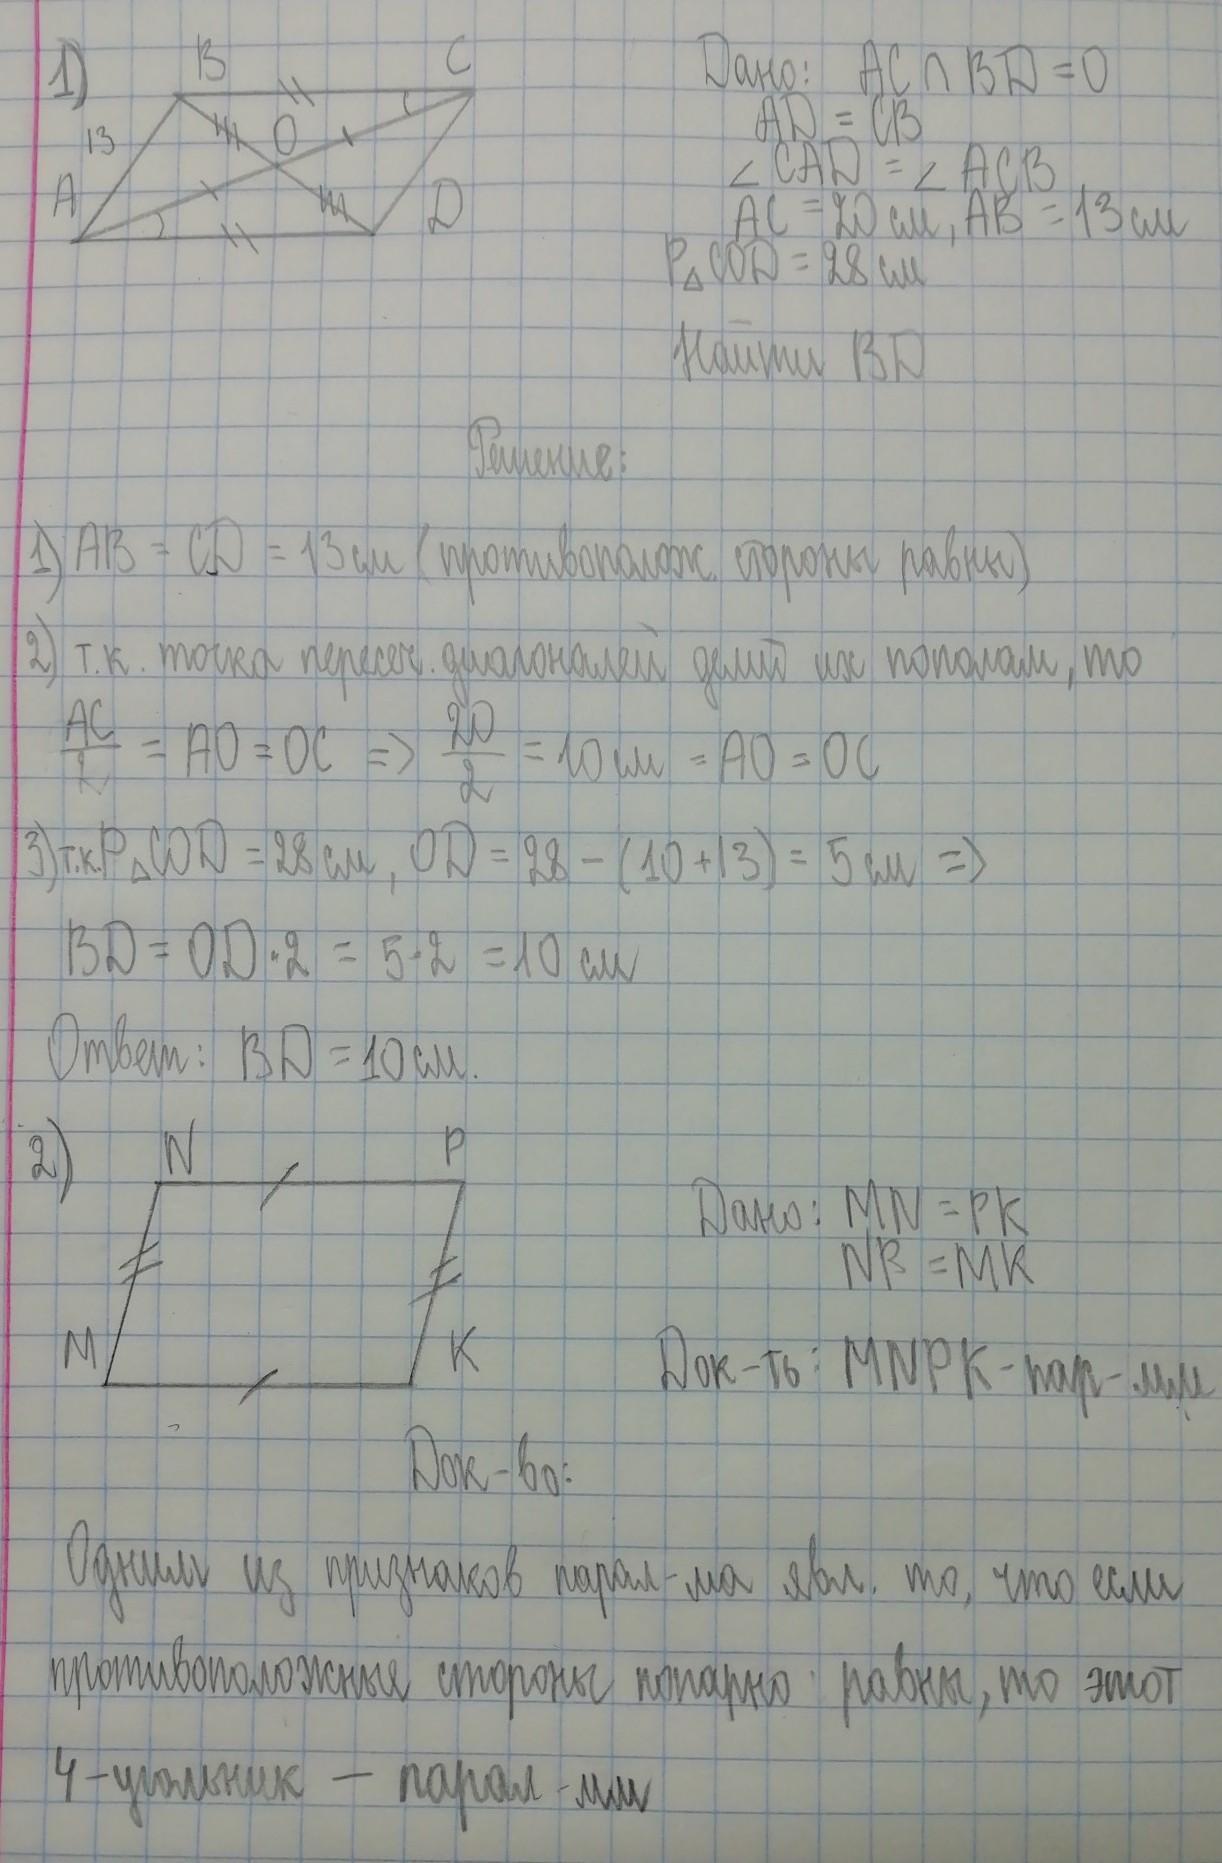 1)
B
C
13
O
A
D
Дано: AC ∩ BD = O
AD = CB
∠ CAD = ∠ ACB
AC = 20 см, AB = 13 см
P△ COD = 28 см
Найти BD
Решение:
1) AB = CD = 13 см (противополож. стороны равны)
2) т.к. точка пересеч. диагоналей делит их пополам, то
AC/2 = AO = OC => 20/2 = 10 см = AO = OC
3) т.к. P△ COD = 28 см, OD = 28 - (10 + 13) = 5 см =>
BD = OD · 2 = 5 · 2 = 10 см
Ответ: BD = 10 см.
2)
N
P
M
K
Дано: MN = PK
NB = MK
Док-ть: MNPK - пар-мм
Док-во:
Одним из признаков парал-ма явл. то, что если
противоположные стороны попарно равны, то этот
4-угольник — парал-мм